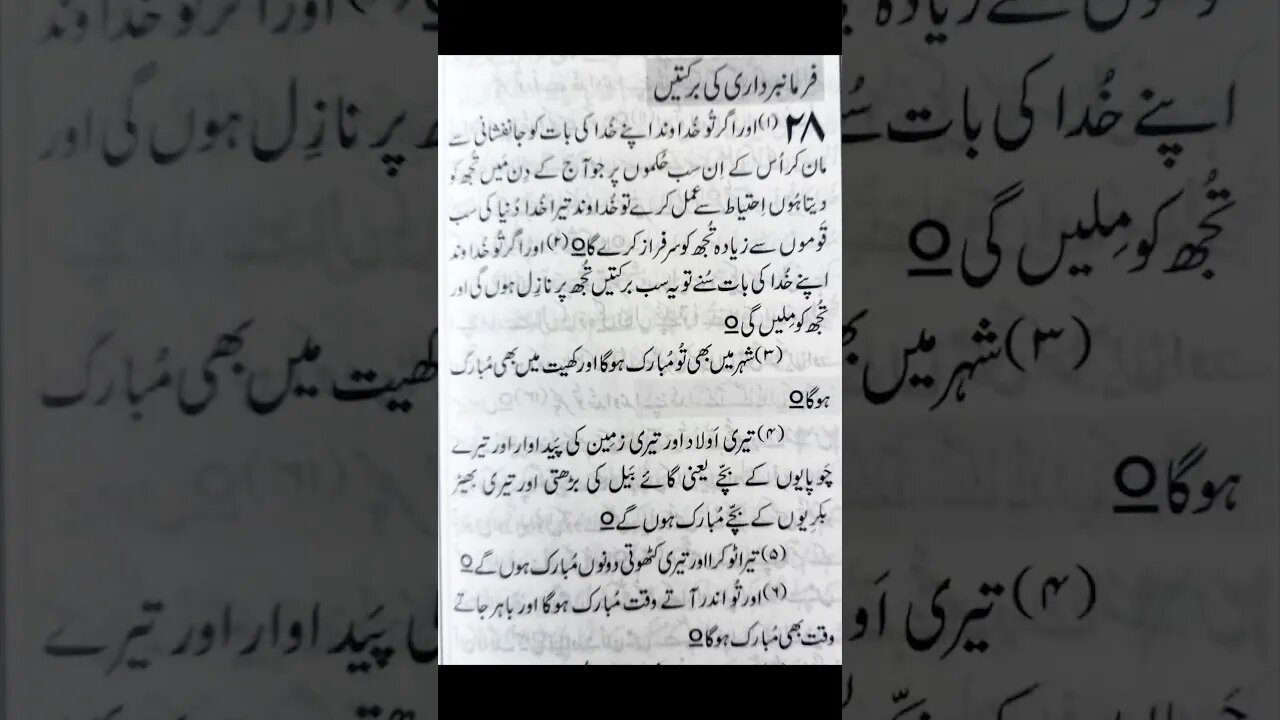 فرمانبرداری کی برکتیں
۲۸ (۱) اور اگر تُو خُداوند اپنے خُدا کی بات کو جانفشانی سے
مان کر اُس کے اِن سب حُکموں پر جو آج کے دِن مَیں تُجھ کو
دیتا ہُوں اِحتیاط سے عمل کرے تو خُداوند تیرا خُدا دُنیا کی سب
قَوموں سے زیادہ تُجھ کو سرفراز کرے گا o (۲) اور اگر تُو خُداوند
اپنے خُدا کی بات سُنے تو یہ سب برکتیں تُجھ پر نازِل ہوں گی اور
تُجھ کو مِلیں گی o
(۳) شہر میں بھی تُو مُبارک ہوگا اور کھیت میں بھی مُبارک
ہوگا o
(۴) تیری اَولاد اور تیری زمِین کی پَیداوار اور تیرے
چَوپایوں کے بچّے یعنی گائے بَیل کی بڑھتی اور تیری بھیڑ
بکرِیوں کے بچّے مُبارک ہوں گے o
(۵) تیرا ٹوکرا اور تیری کٹھوتی دونوں مُبارک ہوں گے o
(۶) اور تُو اندر آتے وقت مُبارک ہوگا اور باہر جاتے
وقت بھی مُبارک ہوگا o